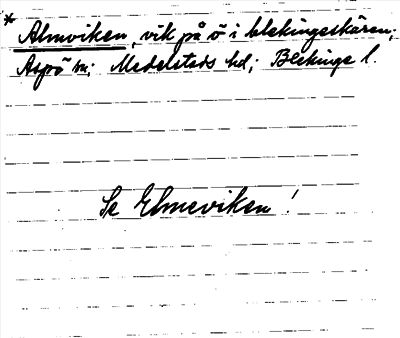 * Almviken, vik på ö i blekingeskären;
Aspö sn; Medelstads hd; Blekinge l.
Se Elmeviken!